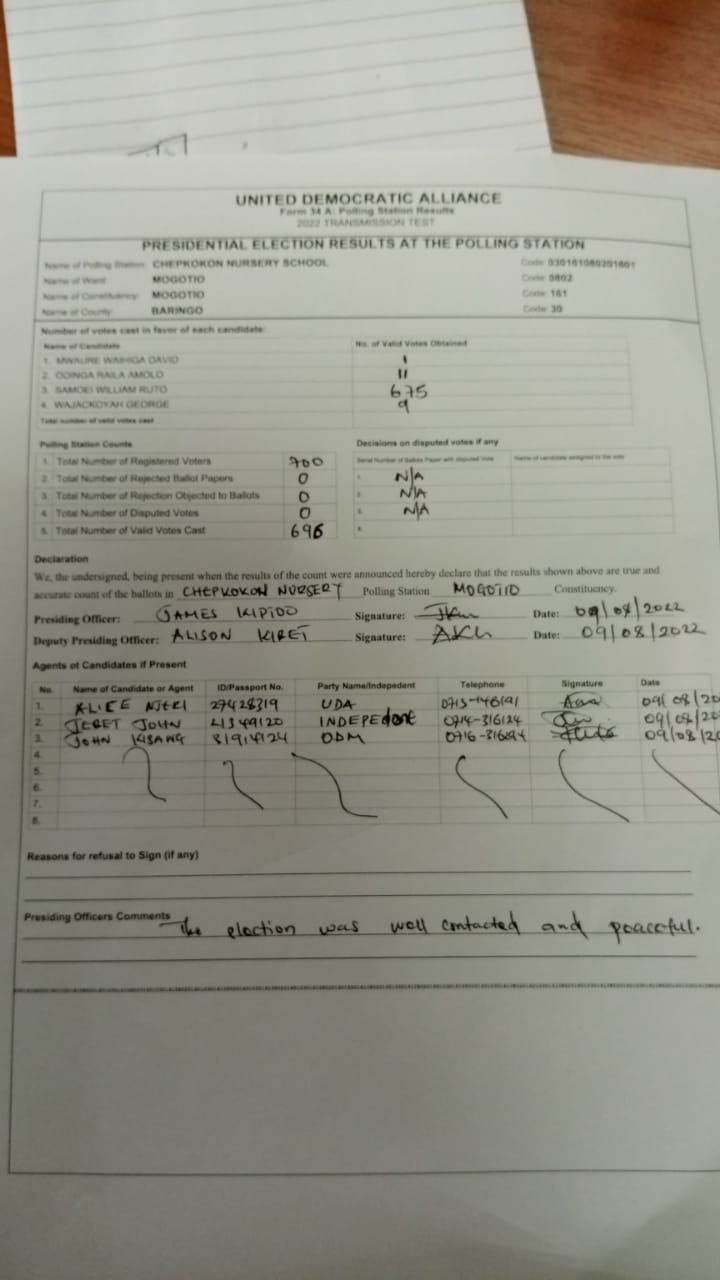 UNITED DEMOCRATIC ALLIANCE
Form 34 A: Polling Station Results
2022 TRANSMISSION TEST
PRESIDENTIAL ELECTION RESULTS AT THE POLLING STATION
Name of Polling Station: CHEPKOKON NURSERY SCHOOL Code: 030161080201601
Name of Ward: MOGOTIO Code: 0802
Name of Constituency: MOGOTIO Code: 161
Name of County: BARINGO Code: 30
Number of votes cast in favor of each candidate:
Name of Candidate No. of Valid Votes Obtained
1. MWAURE WAIHIGA DAVID 1
2. ODINGA RAILA AMOLO 11
3. SAMOEI WILLIAM RUTO 675
4. WAJACKOYAH GEORGE 9
Total number of valid votes cast
Polling Station Counts Decisions on disputed votes if any
1. Total Number of Registered Voters 700 Serial Number of Ballots Paper with disputed Vote Name of candidate assigned to the vote
2. Total Number of Rejected Ballot Papers 0 1. N/A
3. Total Number of Rejection Objected to Ballots 0 2. N/A
4. Total Number of Disputed Votes 0 3. N/A
5. Total Number of Valid Votes Cast 696 4.
Declaration
We, the undersigned, being present when the results of the count were announced hereby declare that the results shown above are true and
accurate count of the ballots in CHEPKOKON NURSERY Polling Station MOGOTIO Constituency.
Presiding Officer: JAMES KIPTOO Signature: Date: 09/08/2022
Deputy Presiding Officer: ALISON KIBET Signature: Date: 09/08/2022
Agents ot Candidates if Present
No. Name of Candidate or Agent ID/Passport No. Party Name/Indepedent Telephone Signature Date
1. ALICE NJERI 27428319 UDA 0715-146191 09/08/20
2. JEBET JOHN 21349120 INDEPEdent 0714-316124 09/08/20
3. JOHN KISANG 81914124 ODM 09/08/20
4.
5.
6.
7.
8.
Reasons for refusal to Sign (if any)
Presiding Officers Comments The election was well contacted and peaceful.